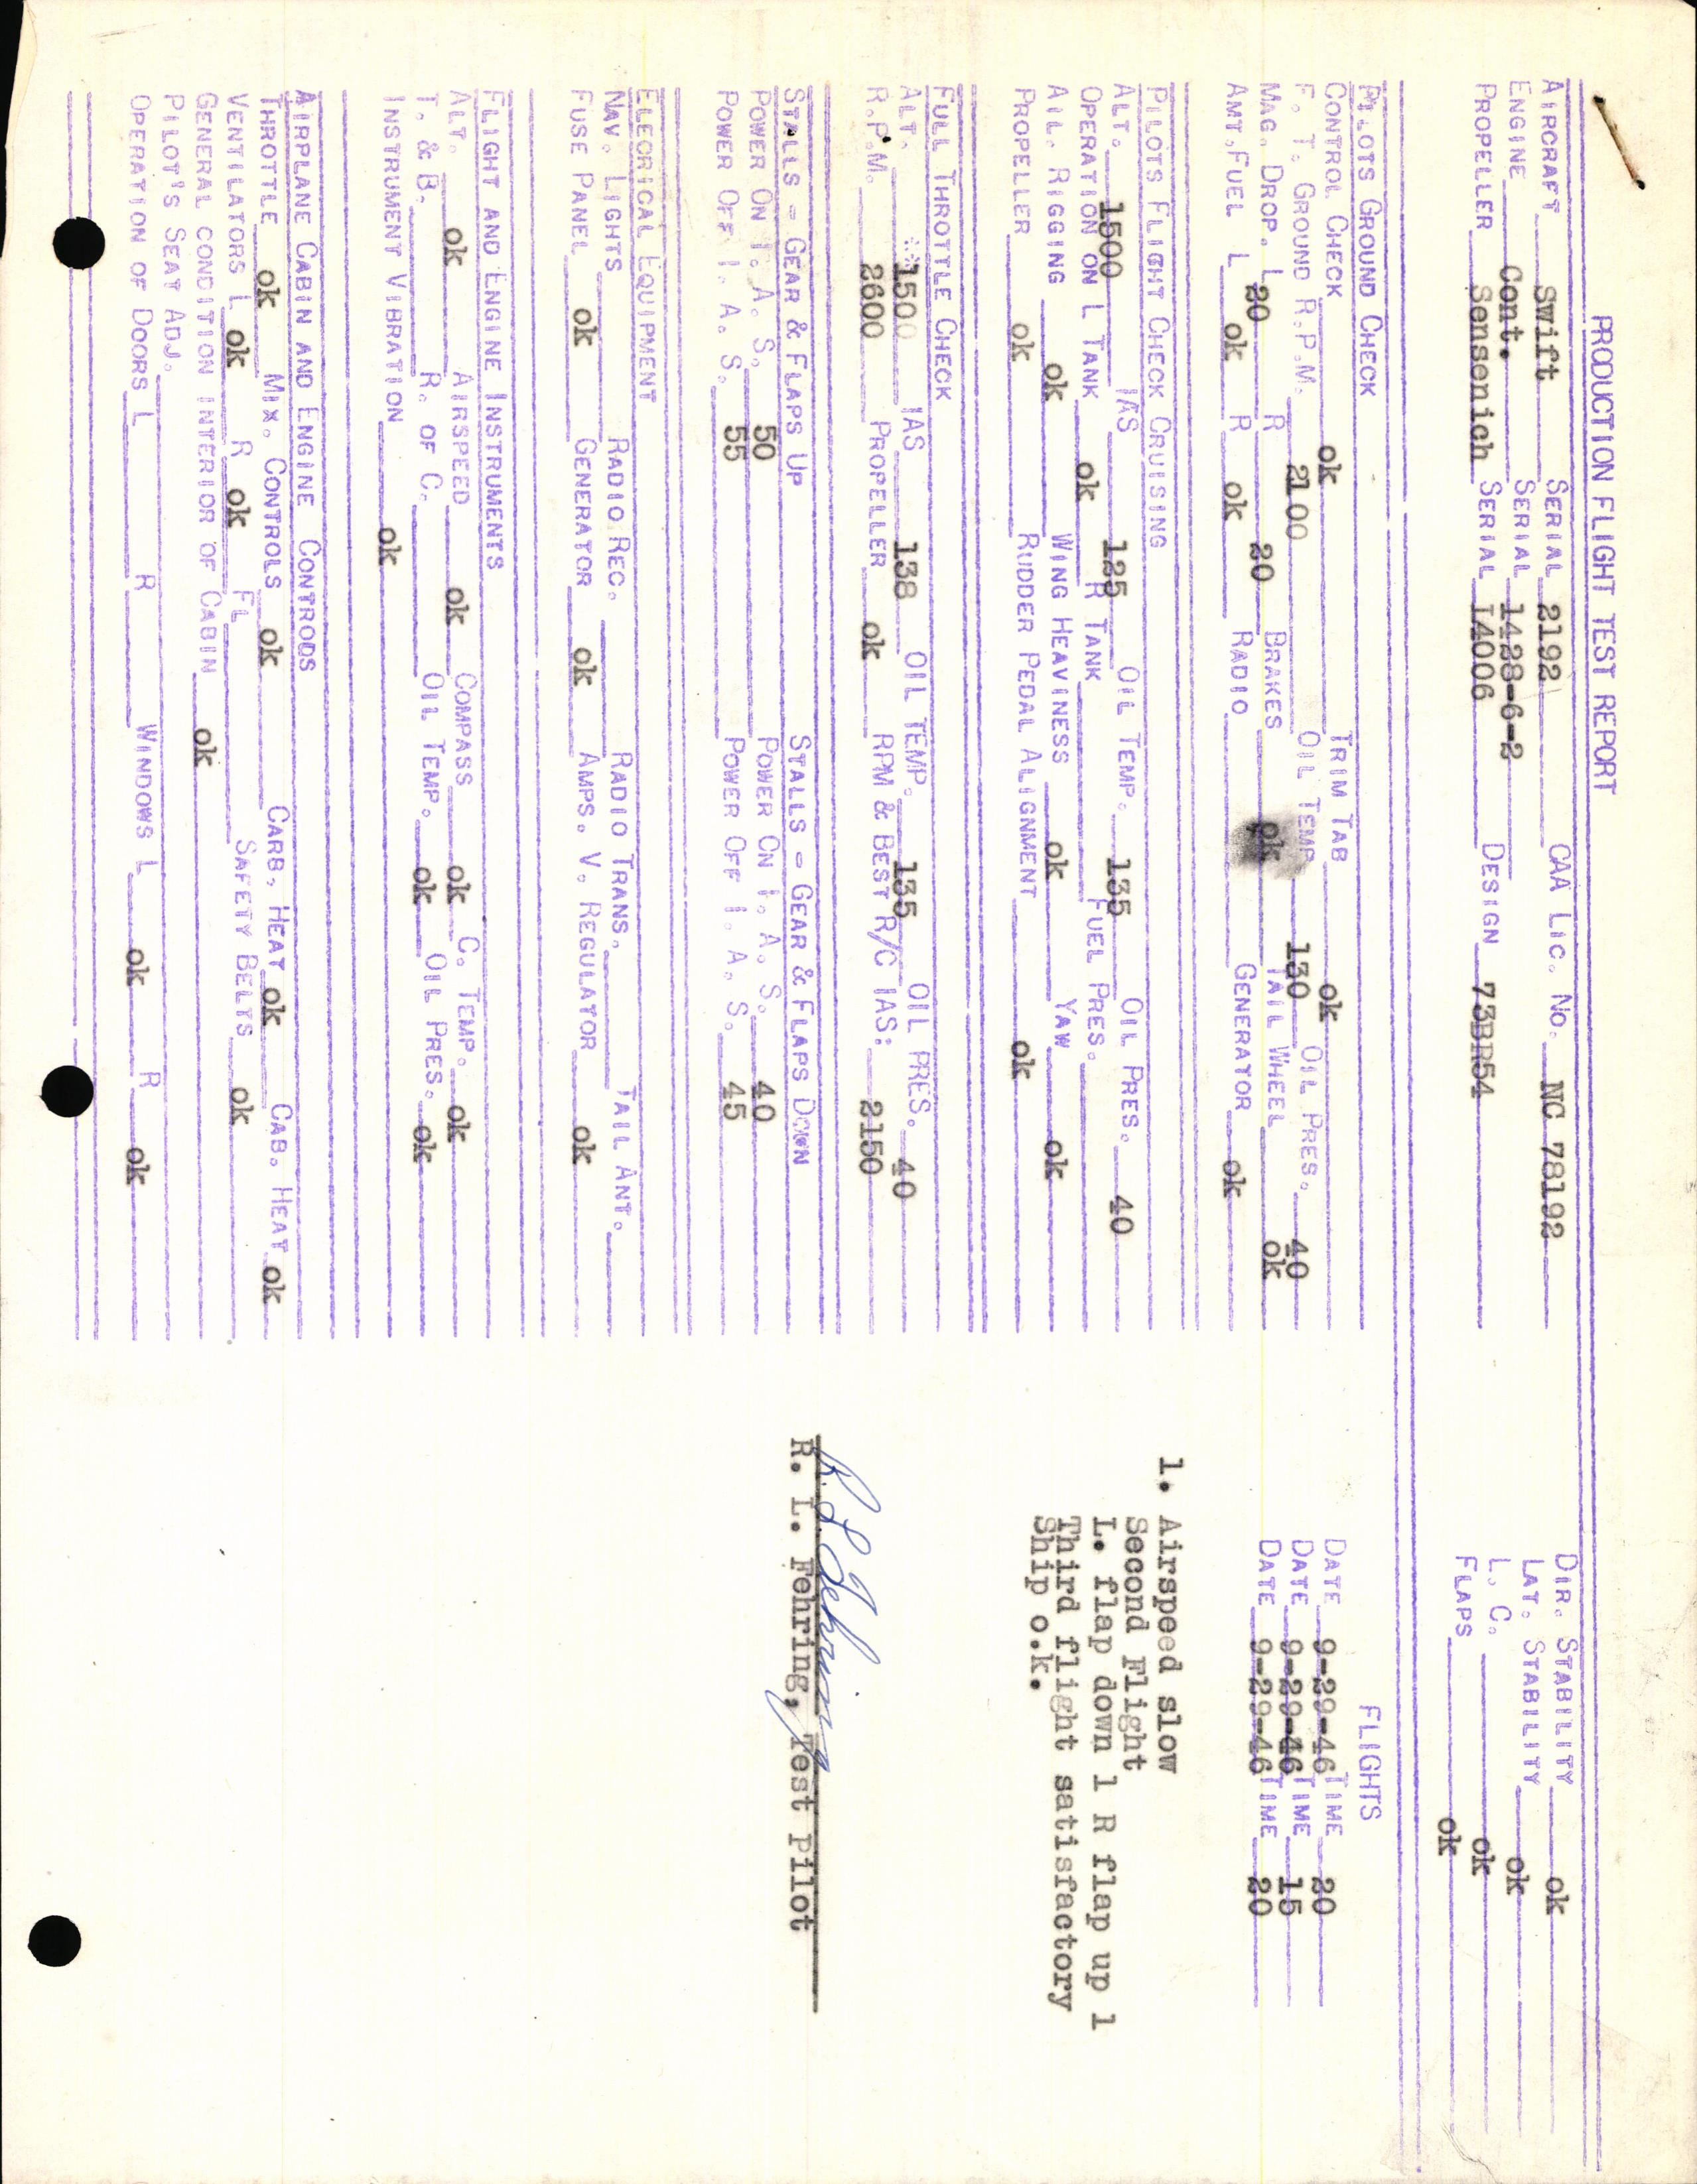 PRODUCTION FLIGHT TEST REPORT
AIRCRAFT Swift SERIAL 2192 CAA LIC. NO. NC 78192 DIR. STABILITY ok
ENGINE Cont. SERIAL 1428-6-2 LAT. STABILITY ok
PROPELLER Sensenich SERIAL I4006 DESIGN 73BR54 L. C. ok
FLAPS ok
PILOTS GROUND CHECK FLIGHTS
CONTROL CHECK ok TRIM TAB ok DATE 9-29-46 TIME 20
F. T. GROUND R.P.M. 2100 OIL TEMP 130 OIL PRES. 40 DATE 9-29-46 TIME 15
MAG. DROP. L 20 R 20 BRAKES ok TAIL WHEEL ok DATE 9-29-46 TIME 20
AMT. FUEL L ok R ok RADIO GENERATOR ok
PILOTS FLIGHT CHECK CRUISING 1. Airspeed slow
ALT. 1500 IAS 125 OIL TEMP. 135 OIL PRES. 40 Second Flight
OPERATION ON L TANK ok R TANK FUEL PRES. L. flap down 1 R flap up 1
AIL. RIGGING ok WING HEAVINESS ok YAW ok Third flight satisfactory
PROPELLER ok RUDDER PEDAL ALIGNMENT ok Ship o.k.
FULL THROTTLE CHECK
ALT. 1500 IAS 138 OIL TEMP. 135 OIL PRES. 40
R.P.M. 2600 PROPELLER ok RPM & BEST R/C IAS: 2150
R. L. Fehring
STALLS - GEAR & FLAPS UP STALLS - GEAR & FLAPS DOWN R. L. Fehring, Test Pilot
POWER ON I. A. S. 50 POWER ON I. A. S. 40
POWER OFF I. A. S. 55 POWER OFF I. A. S. 45
ELECRICAL EQUIPMENT
NAV. LIGHTS RADIO REC. RADIO TRANS. TAIL ANT.
FUSE PANEL ok GENERATOR ok AMPS. V. REGULATOR ok
FLIGHT AND ENGINE INSTRUMENTS
ALT. ok AIRSPEED ok COMPASS ok C. TEMP. ok
T. & B. R. OF C. OIL TEMP. ok OIL PRES. ok
INSTRUMENT VIBRATION ok
AIRPLANE CABIN AND ENGINE CONTRODS
THROTTLE ok MIX. CONTROLS ok CARB. HEAT ok CAB. HEAT ok
VENTILATORS L ok R ok FL SAFETY BELTS ok
GENERAL CONDITION INTERIOR OF CABIN ok
PILOT'S SEAT ADJ.
OPERATION OF DOORS L R WINDOWS L ok R ok